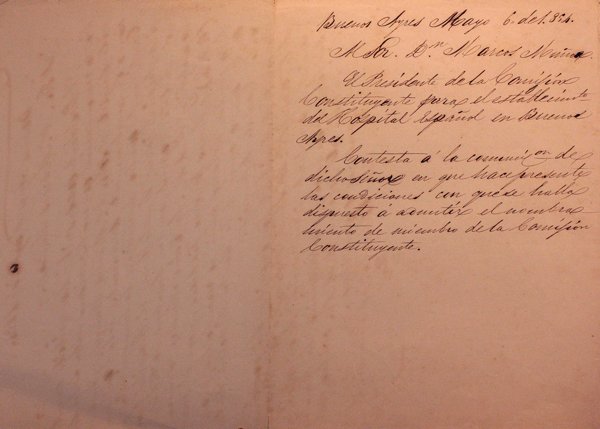 Buenos Ayres Mayo 6. de 1.854.
M. Sor. Dn. Marcos Muñoz.
El Presidente de la Comision
Constituyente para el establecimto
del Hospital Español en Buenos
Ayres.
Contesta á la comunion de
dicho Señor en que hace presente
las condiciones con que se halla
dispuesto á admitir el nombra
miento de miembro de la Comision
Constituyente.